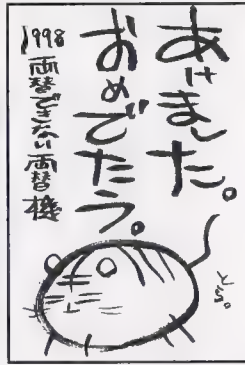 あけました。
おめでたう。
1998 両替できない両替機
とら。